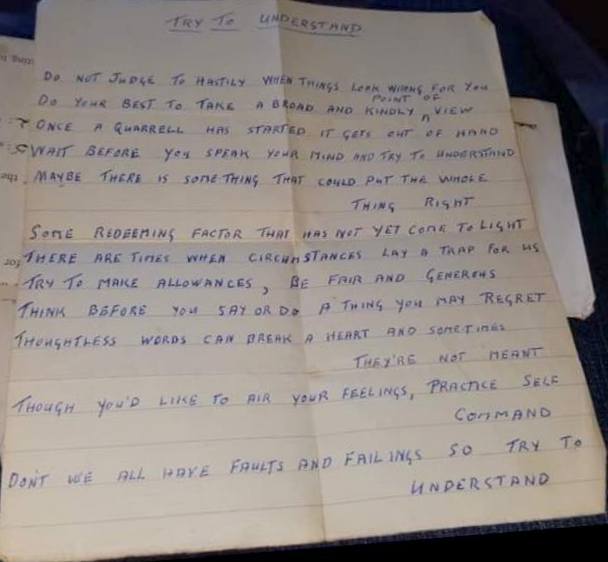 TRY TO UNDERSTAND
DO NOT JUDGE TO HASTILY WHEN THINGS LOOK WRONG FOR YOU
DO YOUR BEST TO TAKE A BROAD AND KINDLY POINT OF VIEW
ONCE A QUARRELL HAS STARTED IT GETS OUT OF HAND
WAIT BEFORE YOU SPEAK YOUR MIND AND TRY TO UNDERSTAND
MAYBE THERE IS SOMETHING THAT COULD PUT THE WHOLE
THING RIGHT
SOME REDEEMING FACTOR THAT HAS NOT YET COME TO LIGHT
THERE ARE TIMES WHEN CIRCUMSTANCES LAY A TRAP FOR US
TRY TO MAKE ALLOWANCES, BE FAIR AND GENEROUS
THINK BEFORE YOU SAY OR DO A THING YOU MAY REGRET
THOUGHTLESS WORDS CAN BREAK A HEART AND SOMETIMES
THEY'RE NOT MEANT
THOUGH YOU'D LIKE TO AIR YOUR FEELINGS, PRACTICE SELF
COMMAND
DON'T WE ALL HAVE FAULTS AND FAILINGS SO TRY TO
UNDERSTAND